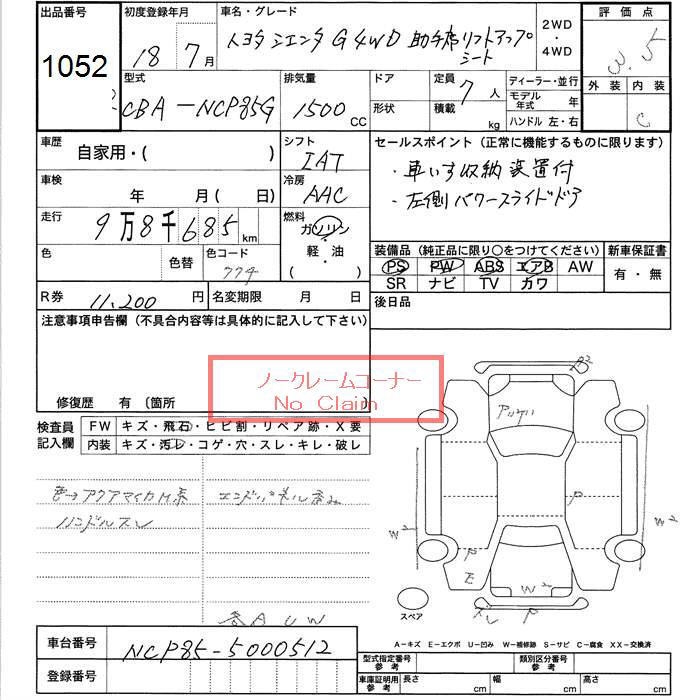 出品番号
1052
初度登録年月
18年7月
車名・グレード
トヨタ シエンタ G 4WD 助手席リフトアップ
シート
2WD
・
4WD
評価点
3.5
外装 内装
C
型式
CBA-NCP85G
排気量
1500 CC
ドア
形状
定員
7人
積載
kg
ディーラー・並行
モデル年式 年
ハンドル 左・右
車歴
自家用・( )
シフト
IAT
セールスポイント (正常に機能するものに限ります)
・車いす収納装置付
・左側パワースライドドア
車検
年 月( 日)
冷房
AAC
走行
9万8千685km
燃料
ガソリン
・
軽・油
( )
色
色替
色コード
774
装備品 (純正品に限り○をつけてください)
PS PW ABS エアB AW
SR ナビ TV カワ
新車保証書
有・無
R券 11,200円
名変期限 月 日
後日品
注意事項申告欄 (不具合内容等は具体的に記入して下さい)
ノークレームコーナー
No Claim
修復歴 有 〔箇所
検査員
記入欄
FW キズ・飛石・ヒビ割・リペア跡・X要
内装 キズ・汚レ・コゲ・穴・スレ・キレ・破レ
色→アクアマイカM系
ハンドルスレ
エンドパネル歪み
各AUW
P
P
E
W2
ズレ P
スペア
A-キズ E-エクボ U-凹み W-補修跡 S-サビ C-腐食 XX-交換済
車台番号
NCP85-5000512
登録番号
型式指定番号
参考
類別区分番号
参考
車庫証明用
参考
長さ cm
幅 cm
高さ cm